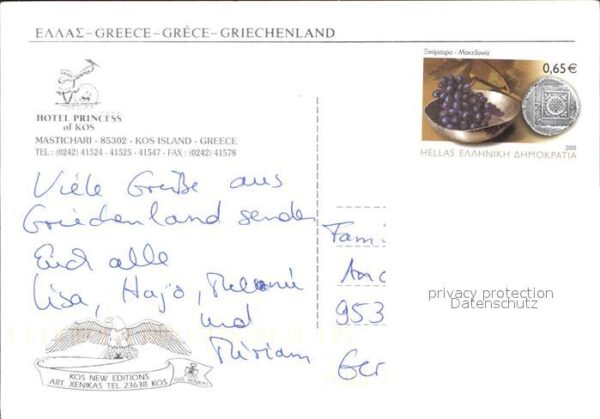 ΕΛΛΑΣ – GREECE – GRÈCE – GRIECHENLAND
Ξινόμαυρο - Μακεδονία
0,65€
HELLAS ΕΛΛΗΝΙΚΗ ΔΗΜΟΚΡΑΤΙΑ
2005
HOTEL PRINCESS
of KOS
MASTICHARI - 85302 - KOS ISLAND - GREECE
TEL : (0242) 41524 - 41525 - 41547 - FAX : (0242) 41578
Viele Grüße aus
Griechenland senden
Euch alle
Lisa, Hajo, Melanie
und
Miriam
Fami
953
Ger
privacy protection
Datenschutz
KOS NEW EDITIONS
ART. XENIKAS TEL 23638 KOS